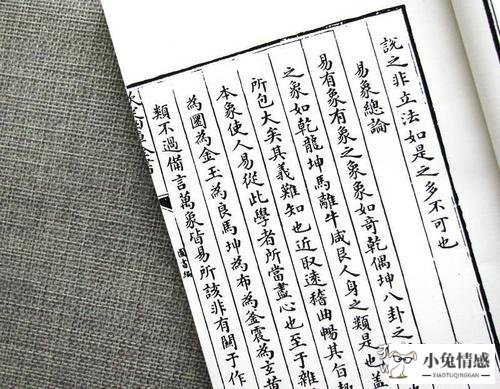 說之非立法如是之多不可也
易象總論
易有象有象之象象如奇乾偶坤八卦之
之象如乾龍坤馬離牛咸艮人身之類是也蓋
所包大矣其義難知也近取遠稽曲暢其自
本象使人易從此學者所當盡心也至于雜
為圜為金玉為良馬坤為布為釜震為玄黃
類不過備言萬象皆易所該非有關于作
圖書編
小兔情感
XIAOTUQINGGAN